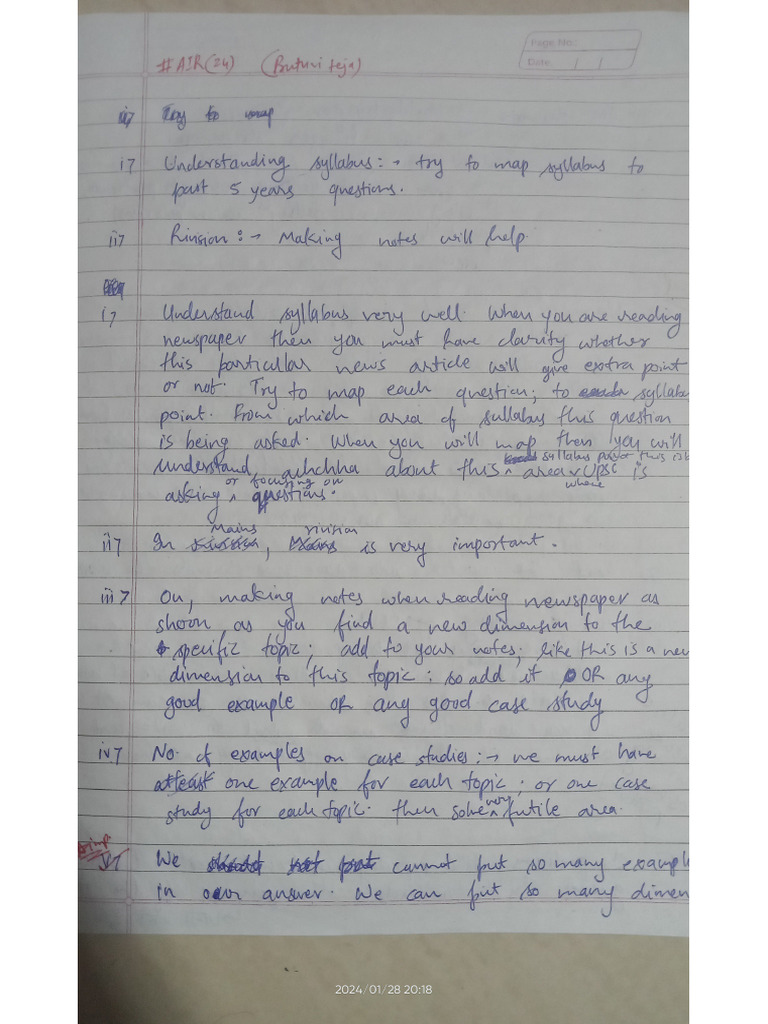 Page No.:
Date: / /
#AIR(24) (Buturi teja)
ii7 Try to map
i7 Understanding syllabus:→ try to map syllabus to
past 5 years questions.
ii7 Rivision:→ Making notes will help.
i7 Understand syllabus very well. When you are reading
newspaper then you must have clarity whother
this particular news article will give extra point
or not. Try to map each question; to syllabu
point. From which area of sullabus this question
is being asked. When you will map then you will
understand, achchha about this area syllabus part this is
where UPSC is
asking or focusing on questions.
ii7 In Mains, rivision is very important.
iii7 On, making notes when reading newspaper as
shoon as you find a new dimension to the
specific topic; add to your notes; like this is a new
dimension to this topic: so add it OR any
good example OR any good case study
iv7 No. of examples on case studies:→ we must have
atleast one example for each topic; or one case
study for each topic. then solve very futile area.
imp
v7 We cannot put so many exampl
in our answer. We can put so many dimen
2024/01/28 20:18